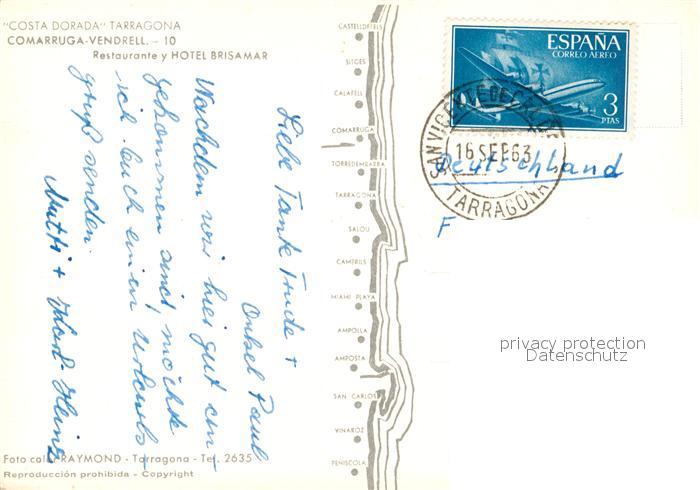 "COSTA DORADA" TARRAGONA
COMARRUGA-VENDRELL. - 10
Restaurante y HOTEL BRISAMAR
Liebe Tante Trude +
Onkel Paul
Nachdem wir hier gut an-
gekommen sind, möchte
ich Euch einen Urlaubs-
gruß senden.
Mutti + Karl-Heinz
Foto color RAYMOND - Tarragona - Tel. 2635
Reproducción prohibida - Copyright
CASTELLDEFELS
SITGES
CALAFELL
COMARRUGA
TORREDEMBARRA
TARRAGONA
SALOU
CAMBRILS
MIAMI PLAYA
AMPOLLA
AMPOSTA
SAN CARLOS
VINAROZ
PEÑISCOLA
ESPAÑA
CORREO AEREO
3
PTAS
SAN VICENTE DE CALDERS
16 SEP. 63
TARRAGONA
Deutschland
F
privacy protection
Datenschutz